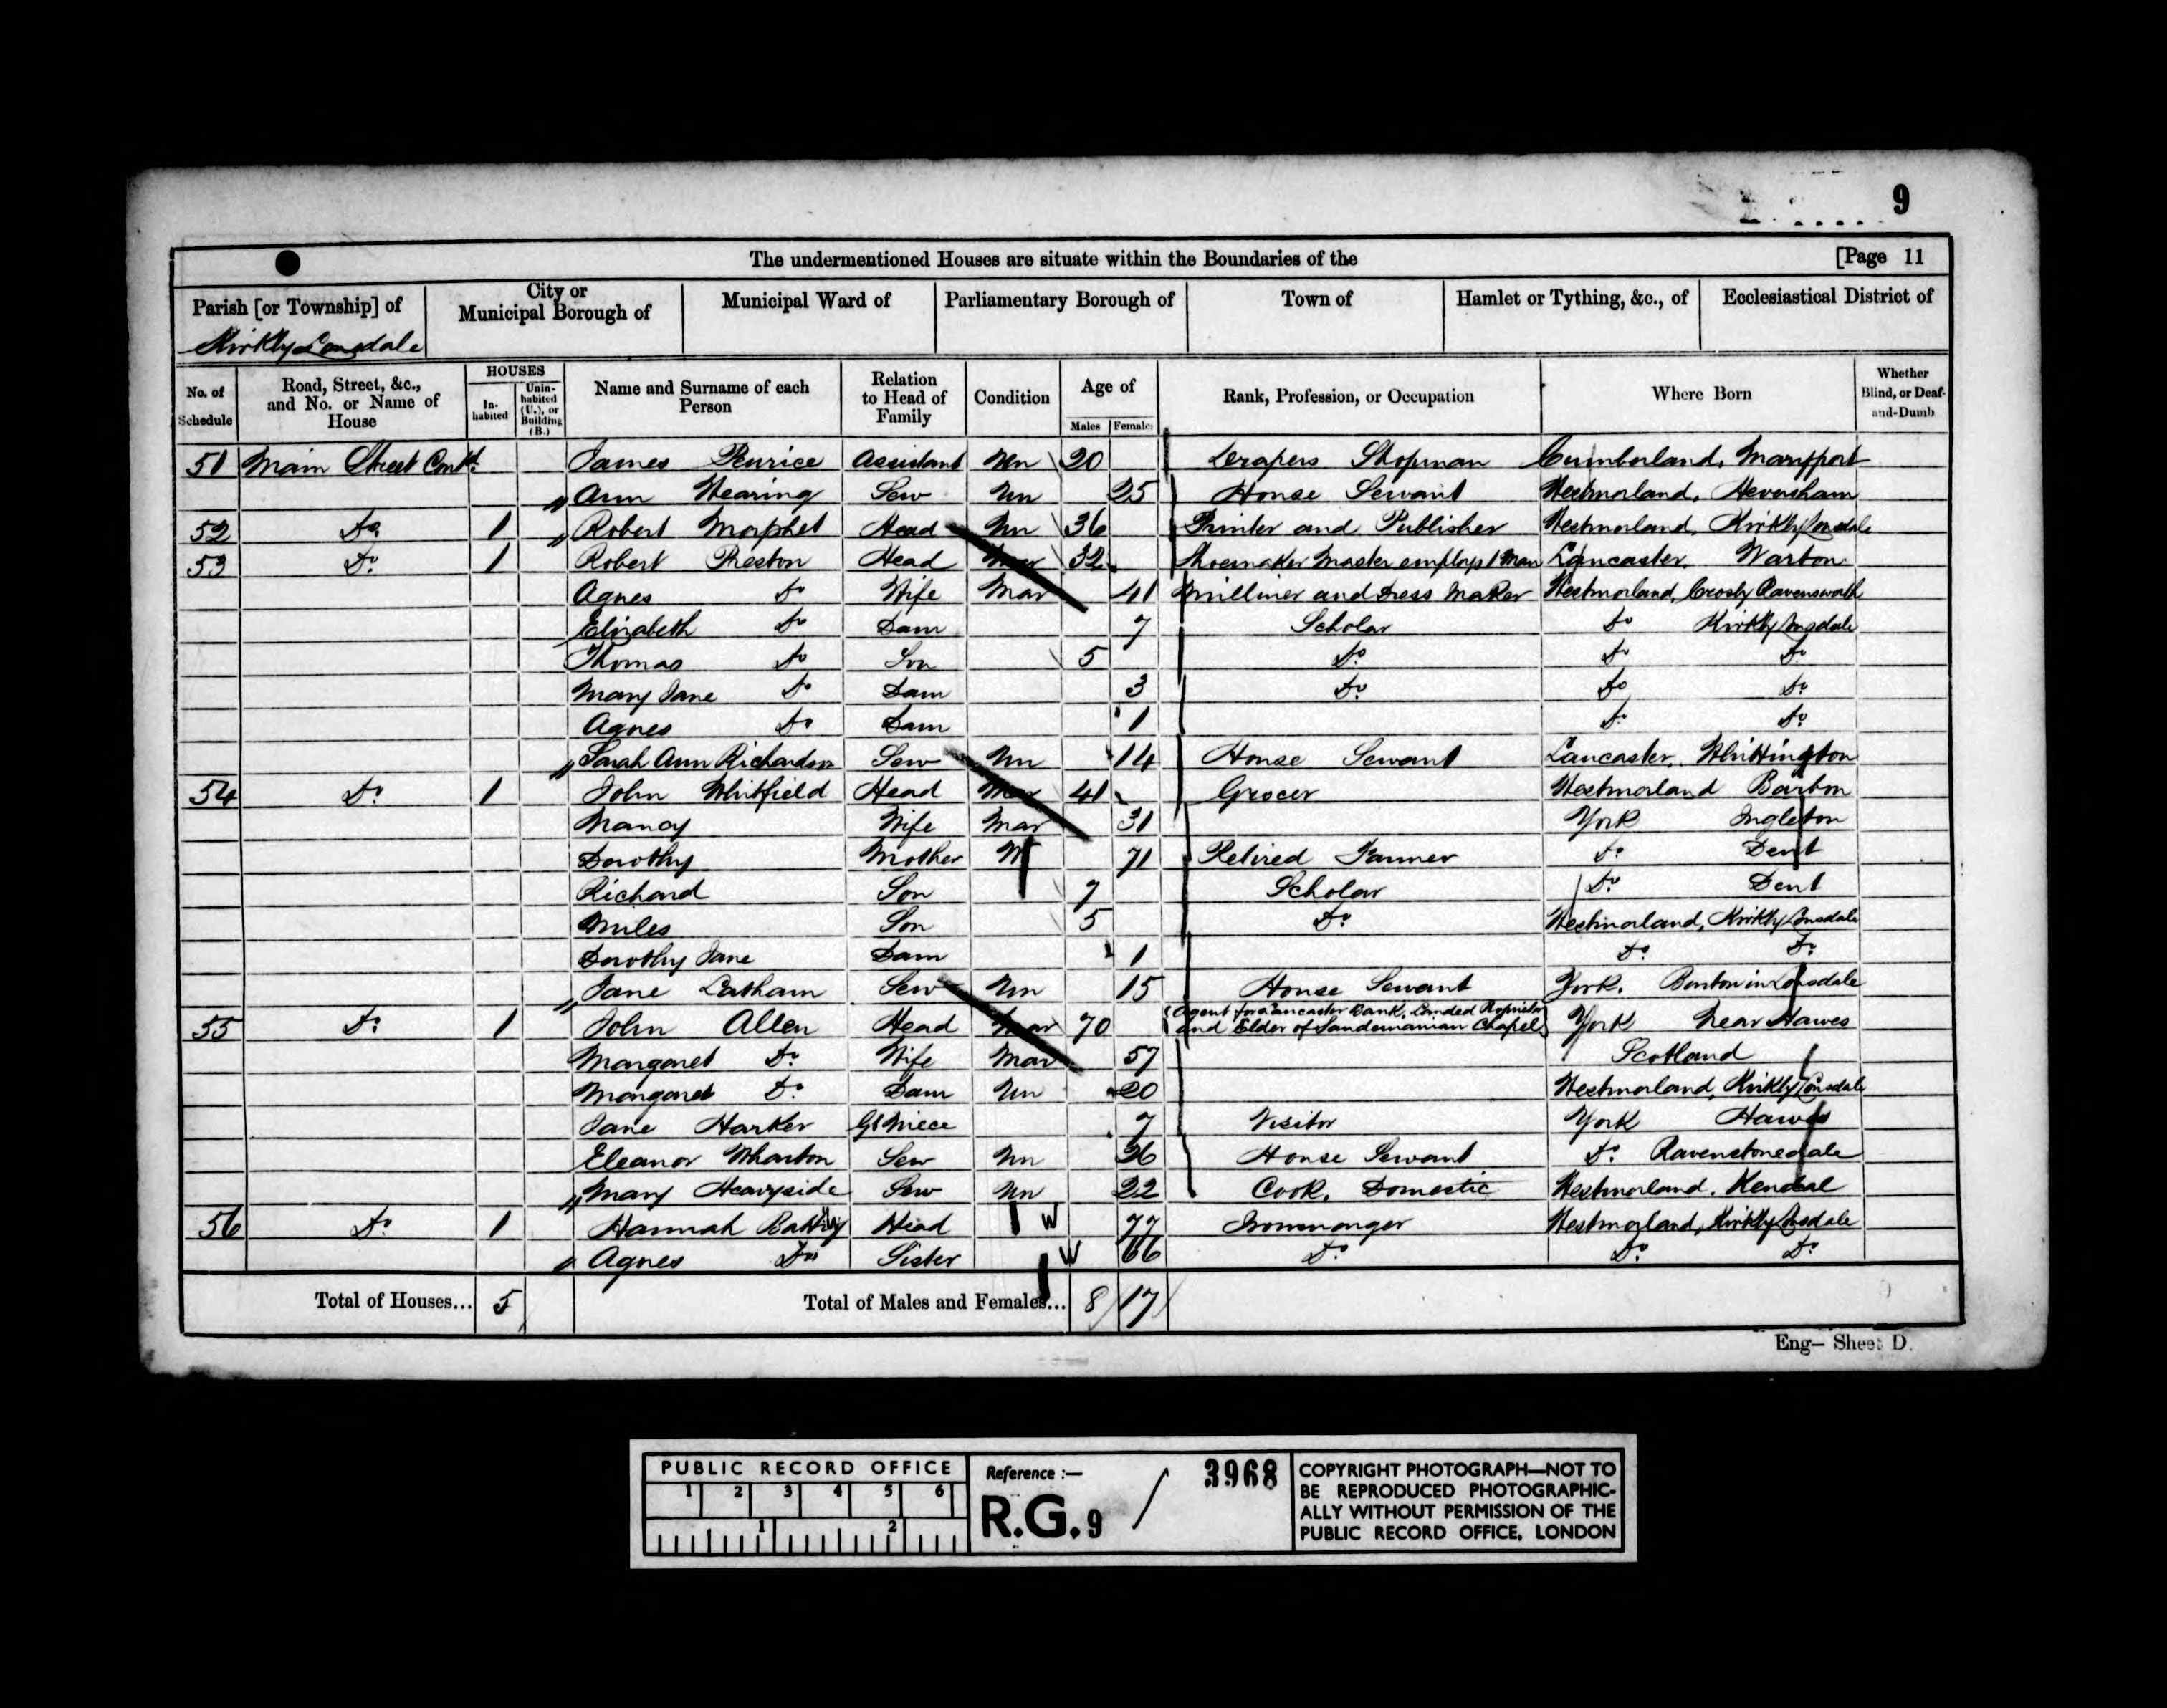 9
The undermentioned Houses are situate within the Boundaries of the [Page 11
Parish [or Township] of City or Municipal Borough of Municipal Ward of Parliamentary Borough of Town of Hamlet or Tything, &c., of Ecclesiastical District of
Kirkby Lonsdale
No. of Schedule Road, Street, &c., and No. or Name of House HOUSES In-habited Unin-habited (U.), or Building (B.) Name and Surname of each Person Relation to Head of Family Condition Age of Males Females Rank, Profession, or Occupation Where Born Whether Blind, or Deaf-and-Dumb
51 Main Street Contd. James Penrice Assistant Un 20 Drapers Shopman Cumberland, Maryport
Ann Hearing Serv Un 25 House Servant Westmorland, Heversham
52 Do. 1 Robert Morphet Head Un 36 Printer and Publisher Westmorland, Kirkby Lonsdale
53 Do. 1 Robert Preston Head Mar 32 Shoemaker Master employs 1 Man Lancaster. Warton
Agnes Do Wife Mar 41 Milliner and Dress Maker Westmorland, Crosby Ravensworth
Elizabeth Do Daur 7 Scholar Do Kirkby Lonsdale
Thomas Do Son 5 Do. Do Do
Mary Jane Do Daur 3 Do. Do Do
Agnes Do Daur 1 Do Do
Sarah Ann Richardson Serv Un 14 House Servant Lancaster. Whittington
54 Do. 1 John Whitfield Head Mar 41 Grocer Westmorland Barbon
Nancy Wife Mar 31 York Ingleton
Dorothy Mother W 71 Retired Farmer Do Dent
Richard Son 7 Scholar Do Dent
Miles Son 5 Do. Westmorland, Kirkby Lonsdale
Dorothy Jane Daur 1 Do. Do.
Jane Latham Serv Un 15 House Servant York. Burton in Lonsdale
55 Do. 1 John Allen Head Mar 70 Agent for Lancaster Bank, Landed Proprietor and Elder of Sandemanian Chapel York Near Hawes
Margaret Do. Wife Mar 57 Scotland
Margaret Do. Daur Un 20 Westmorland, Kirkby Lonsdale
Jane Harker Gt Niece 7 Visitor York Hawes
Eleanor Wharton Serv Un 36 House Servant Do. Ravenstonedale
Mary Heavyside Serv Un 22 Cook, Domestic Westmorland. Kendal
56 Do. 1 Hannah Head W 77 Ironmonger Westmorland, Kirkby Lonsdale
Agnes Do Sister W 66 Do. Do. Do.
Total of Houses... 5 Total of Males and Females... 8 17
Eng— Sheet D.
PUBLIC RECORD OFFICE
1 2 3 4 5 6
1 2
Reference :—
R.G. 9 / 3968
COPYRIGHT PHOTOGRAPH—NOT TO
BE REPRODUCED PHOTOGRAPHIC-
ALLY WITHOUT PERMISSION OF THE
PUBLIC RECORD OFFICE, LONDON